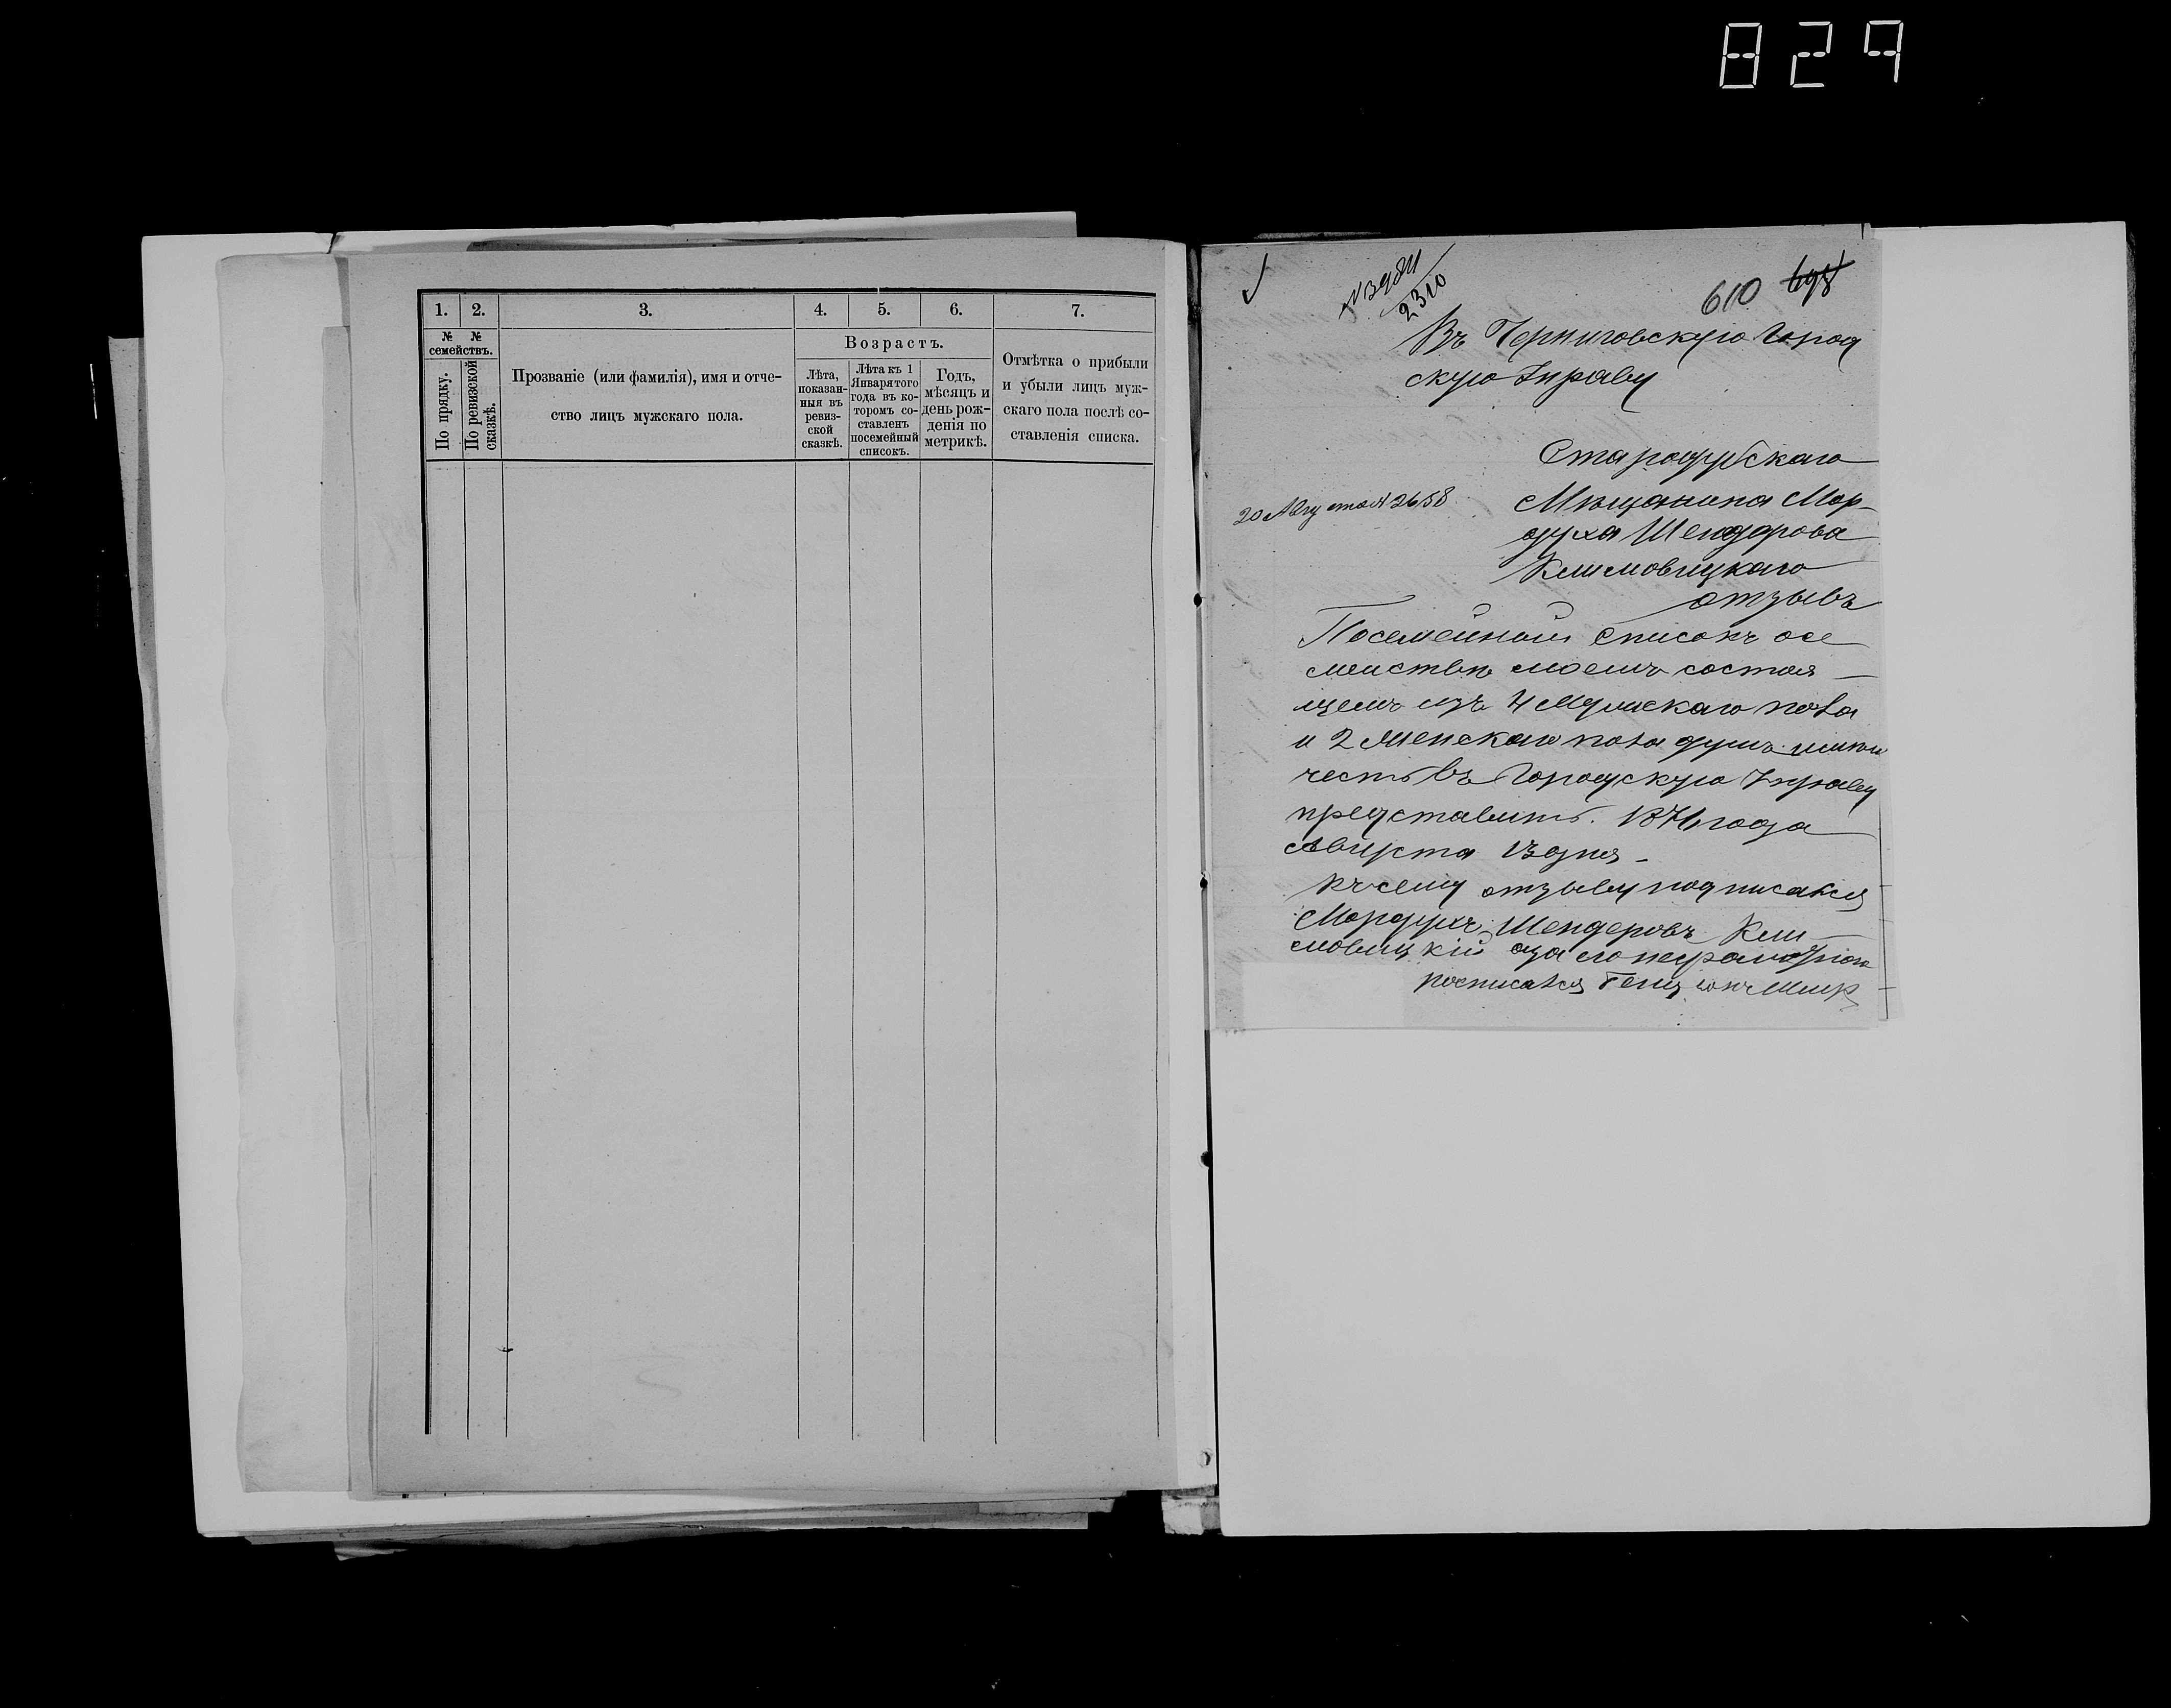 829
1.
2.
3.
4.
5.
6.
7.
№ №
семействъ.
По прядку.
По ревизской
сказкѣ.
Прозваніе (или фамилія), имя и отче-
ство лицъ мужскаго пола.
Возрастъ.
Лѣта,
показан-
ныя въ
ревиз-
ской
сказкѣ.
Лѣта къ 1
Января того
года въ ко-
торомъ со-
ставленъ
посемейный
списокъ.
Годъ,
мѣсяцъ и
день рож-
денія по
метрикѣ.
Отмѣтка о прибыли
и убыли лицъ муж-
скаго пола послѣ со-
ставленія списка.
2310
610 698
Въ Черниговскую Город
скую Управу
Стародубскаго
20 Августа № 2658
Мѣщанина Мор-
духа Шендерова
Климовицкаго
отзывъ
Посемейной списокъ о се
мействѣ моемъ состоя
щемъ изъ 4 Мужскаго пола
и 2 Женскаго пола душъ имѣю
честь въ Городскую Управу
представить. 1876 года
Августа 13 дня
Къ сему отзыву подписался
Мордухъ Шендеровъ Кли
мовицкій а за его неграмотного
росписался